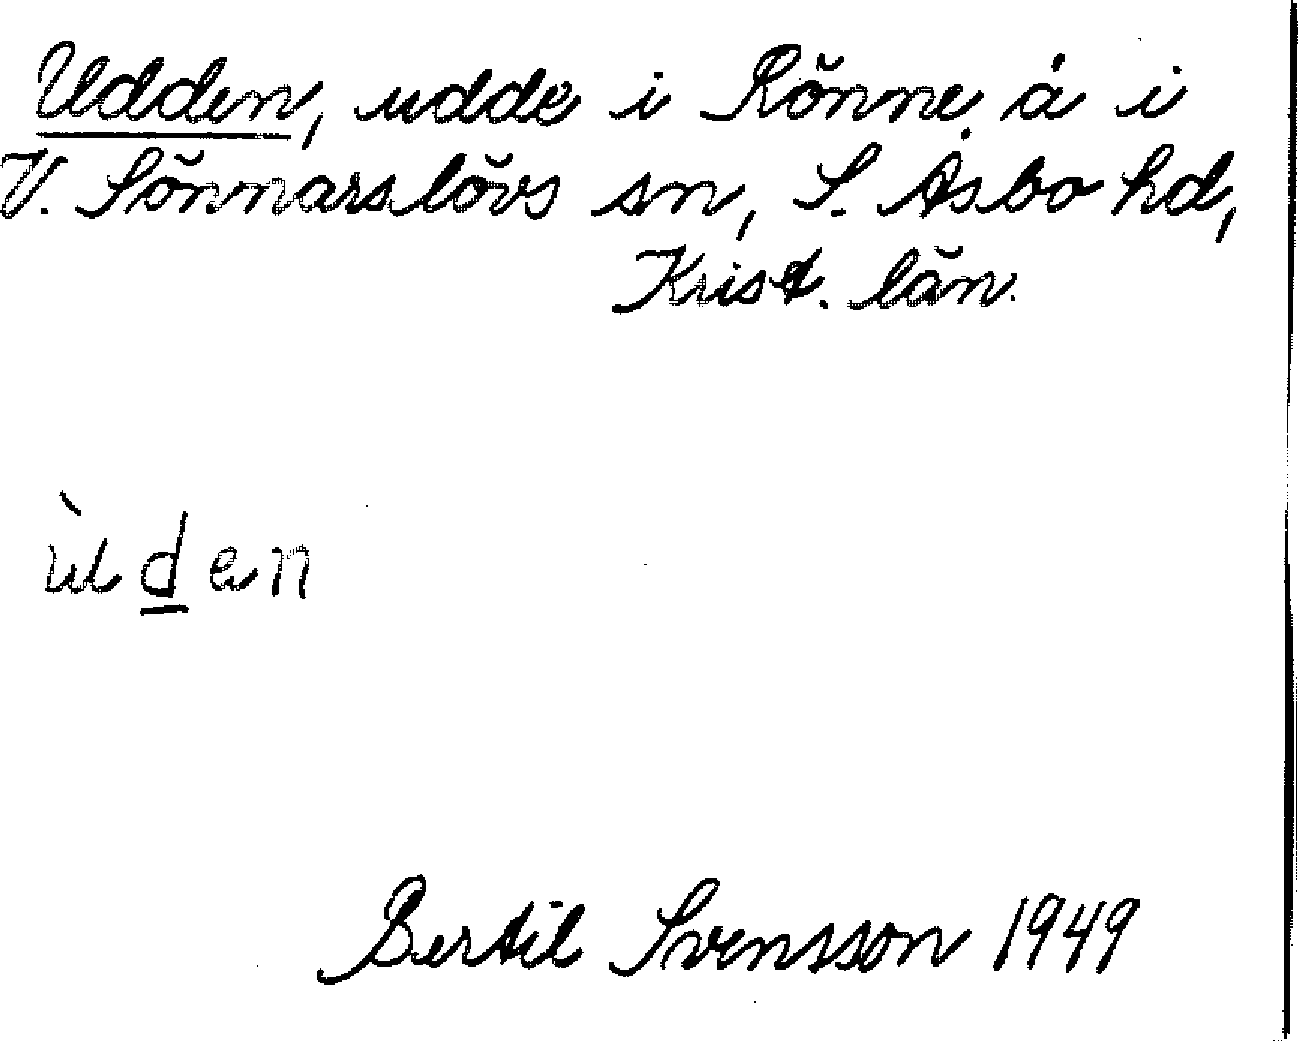 Udden, udde i Rönne å i
V. Sönnarslövs sn, S. Åsbo hd,
Krist. län.
ùden
Bertil Svensson 1949